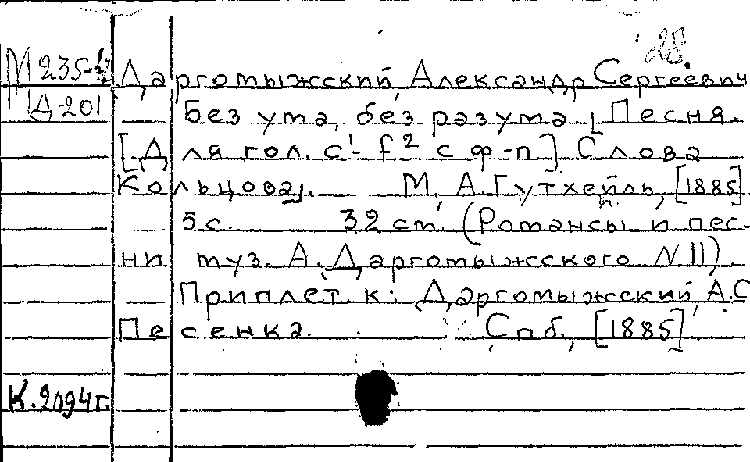 28.
М 235-
Д-201
Даргомыжский, Александр Сергеевич
Без ума, без разума [Песня.
[Для гол. c¹- f² с ф-п] Слова
Кольцова]. М., А. Гутхейль, [1885]
5 с. 32 см. (Романсы и пес-
ни муз. А. Даргомыжского N 11).
Приплет. к: Даргомыжский, А.С
Песенка. Спб., [1885]
К. 2094г.